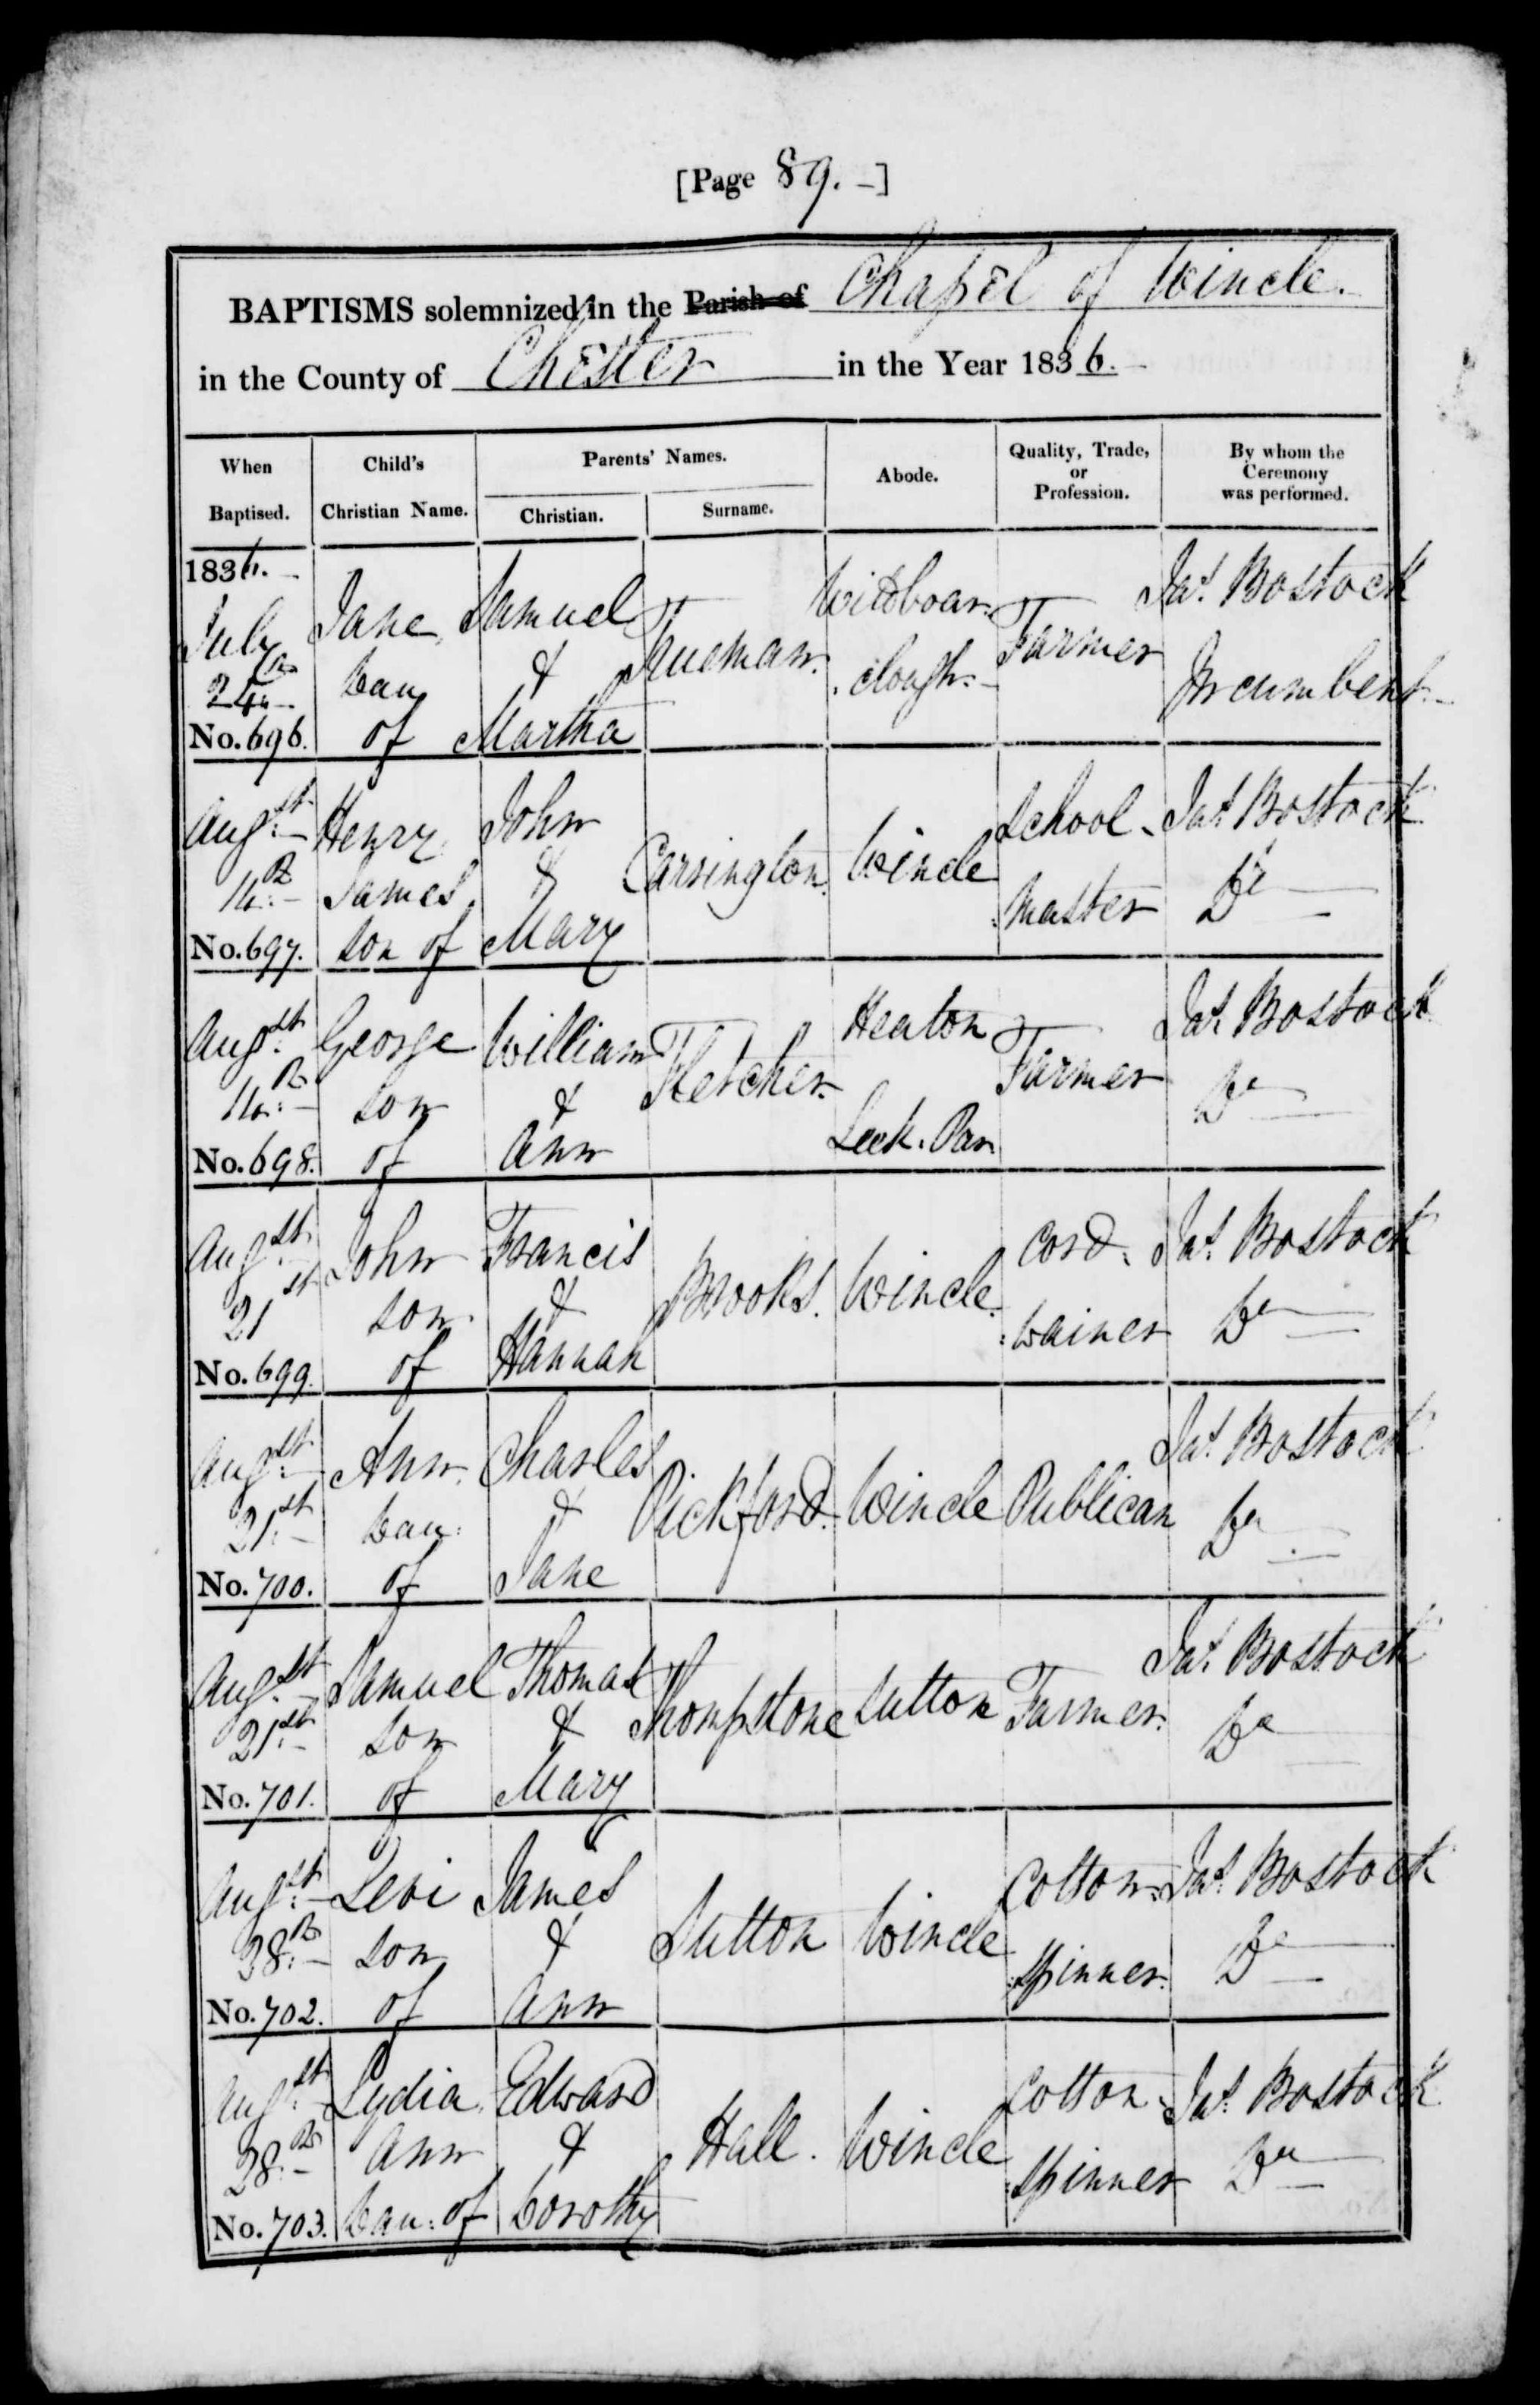 [Page 89.-]
BAPTISMS solemnized in the Parish of Chapel of Wincle.
in the County of Chester in the Year 1836.-
When Baptised.
Child's Christian Name.
Parents' Names.
Christian.
Surname.
Abode.
Quality, Trade, or Profession.
By whom the Ceremony was performed.
1836.-
July 24th.- No. 696.
Jane, Dau of
Samuel & Martha
Trueman.
Wildboar- clough.-
Farmer
Jas. Bostock Incumbent.-
Augst.- 14th.- No. 697.
Henry James son of
John & Mary
Carrington.
Wincle
School- master
Jas. Bostock Do
Augst. 14th.- No. 698.
George son of
William & Ann
Fletcher.
Heaton Leek. Par.
Farmer
Jas. Bostock Do
Augst. 21st No. 699.
John son of
Francis & Hannah
Brooks.
Wincle.
Cord- :wainer
Jas. Bostock Do
Augst.- 21st.- No. 700.
Ann. Dau: of
Charles & Jane
Pickford.
Wincle
Publican
Jas. Bostock Do
Augst.- 21st.- No. 701.
Samuel son of
Thomas & Mary
Thompstone
Sutton
Farmer.
Jas. Bostock Do
Augst.- 28th.- No. 702.
Levi son of
James & Ann
Sutton
Wincle
Cotton- :spinner.
Jas. Bostock Do
Augst.- 28th.- No. 703.
Lydia, Ann Dau: of
Edward & Dorothy
Hall.
Wincle
Cotton- :spinner
Jas. Bostock Do